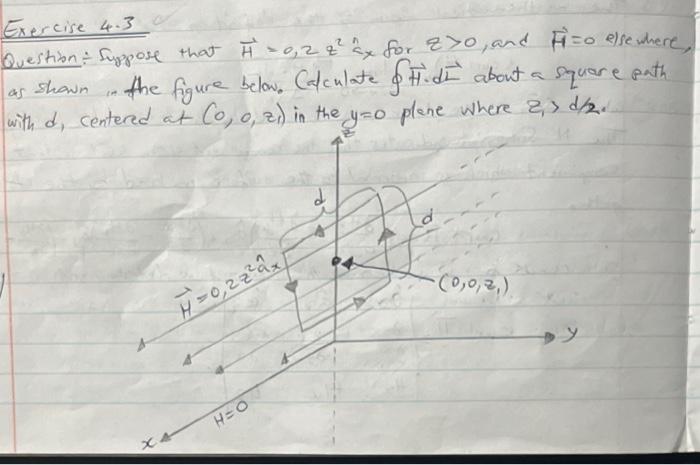 Exercise 4.3
Question:- Suppose that H⃗ = 0,2 z² âx for z>0, and H⃗=0 elsewhere,
as shown in the figure below. Calculate ∮H⃗.dL⃗ about a square path
with d, centered at (0, 0, z₁) in the y=0 plane where z₁ > d/2.
z
d
d
H⃗=0,2z²âx
(0,0,z₁)
y
H=0
x